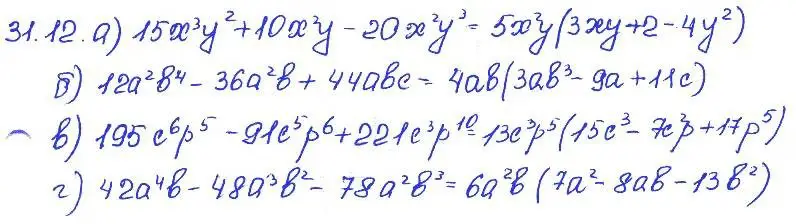 31.12. а) 15x³y² + 10x²y - 20x²y³ = 5x²y(3xy + 2 - 4y²)
б) 12a²b⁴ - 36a²b + 44abc = 4ab(3ab³ - 9a + 11c)
в) 195c⁶p⁵ - 91c⁵p⁶ + 221c³p¹⁰ = 13c³p⁵(15c³ - 7c²p + 17p⁵)
г) 42a⁴b - 48a³b² - 78a²b³ = 6a²b(7a² - 8ab - 13b²)